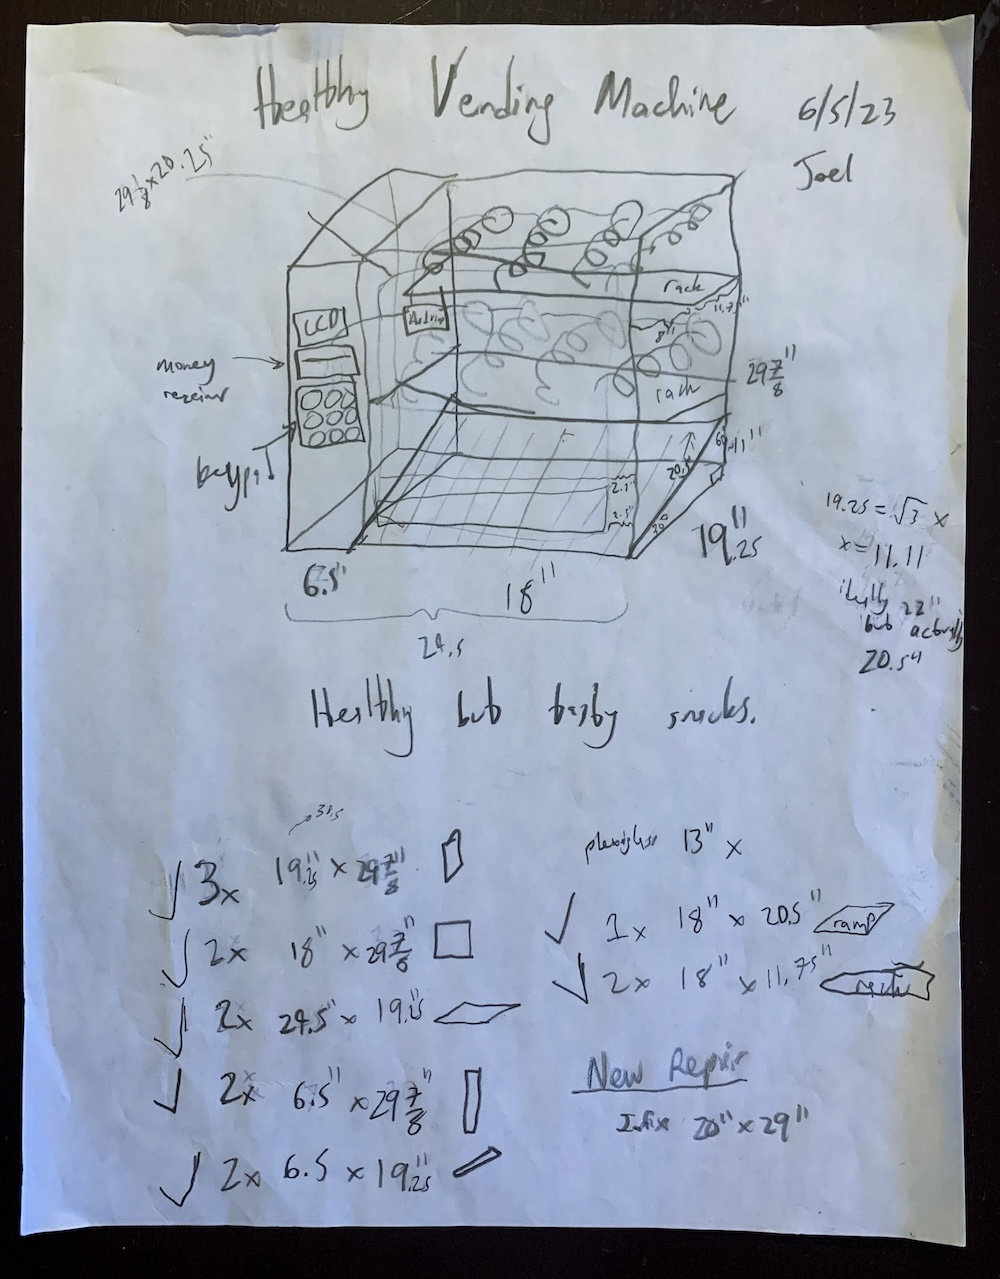 Healthy Vending Machine
6/5/23
Joel
29 1/8 x 20.25"
LCD
money
keypad
rack
11.75"
8"
rack
29 7/8"
60
11"
20.5"
30°
2.5"
19.25"
6.5"
18"
24.5
19.25 = √3 x
x = 11.11
22"
but actually
20.5"
Healthy but tasty snacks.
3x 19.25" x 29 7/8"
2x 18" x 29 7/8"
2x 24.5" x 19.25"
2x 6.5" x 29 7/8"
2x 6.5 x 19.25"
plexiglass 13" x
1x 18" x 20.5" ramp
2x 18" x 11.75"
New Repair
20" x 29"